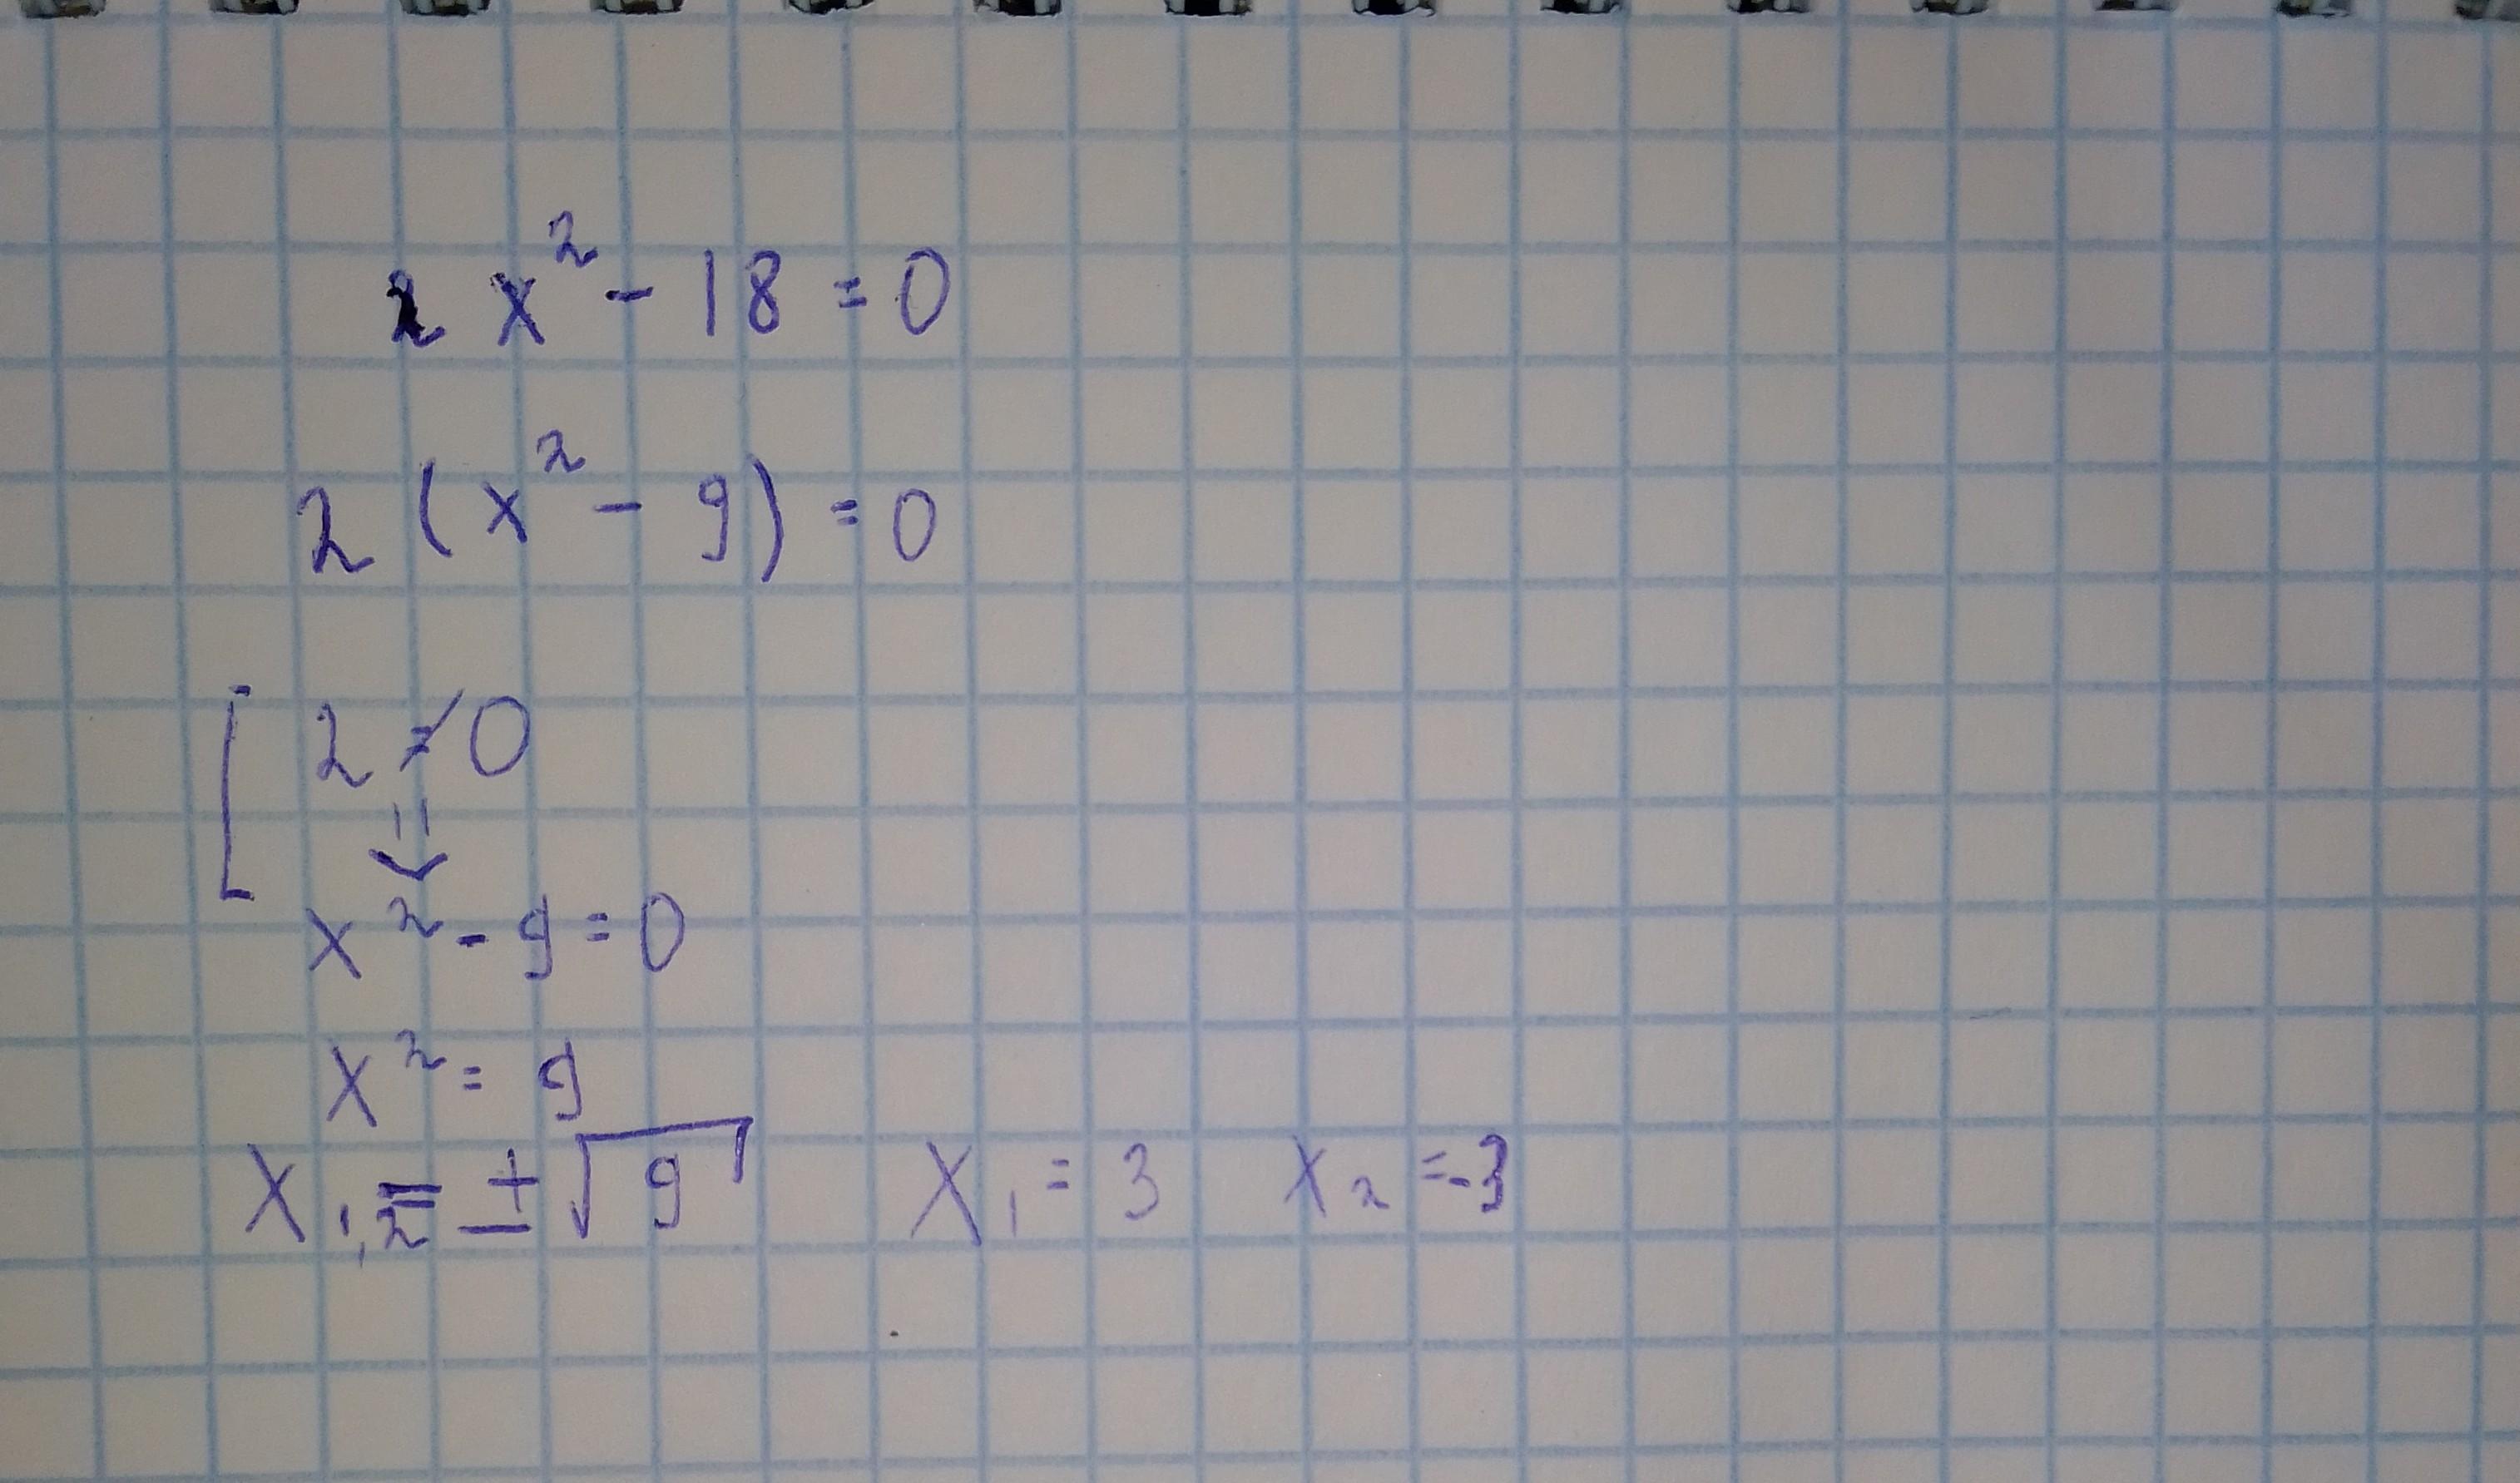 2 x² - 18 = 0
2 (x² - 9) = 0
[ 2 ≠ 0
⇓
x² - 9 = 0
x² = 9
x₁,₂ = ± √9 x₁ = 3 x₂ = -3